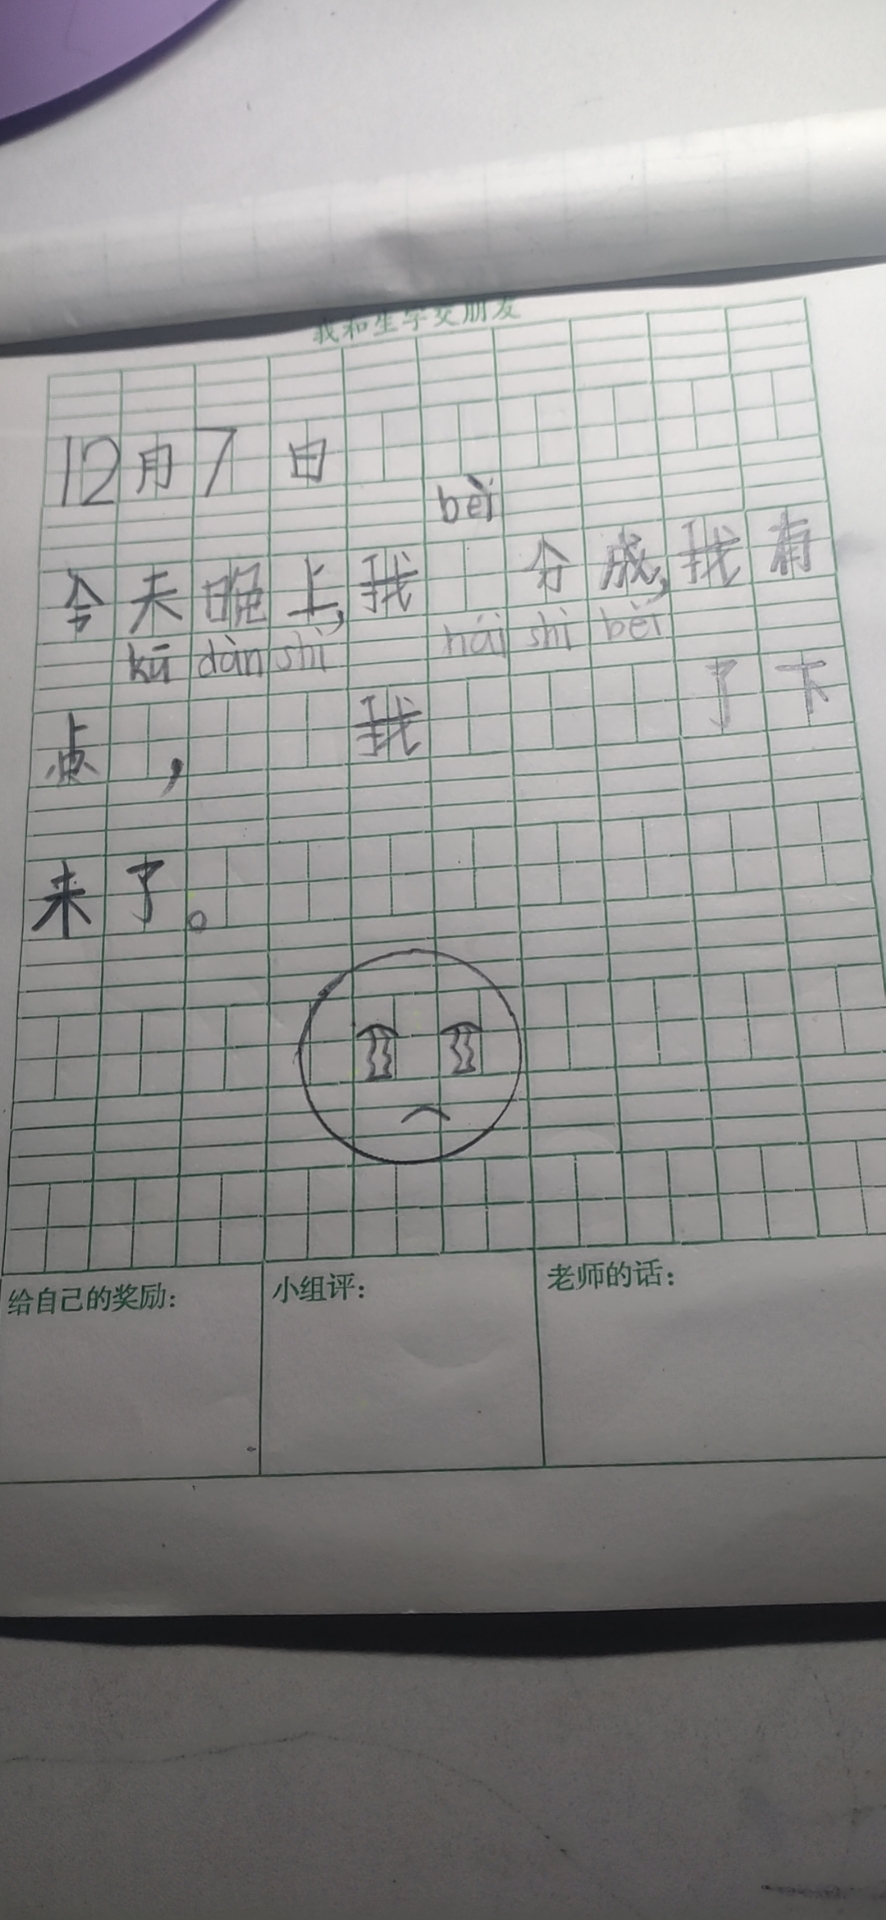 我和生字交朋友
12月7日
bèi
今天晚上,我 分成,我有
kū dàn shì hái shì bèi
点 , 我 了下
来了。
给自己的奖励：
小组评：
老师的话：